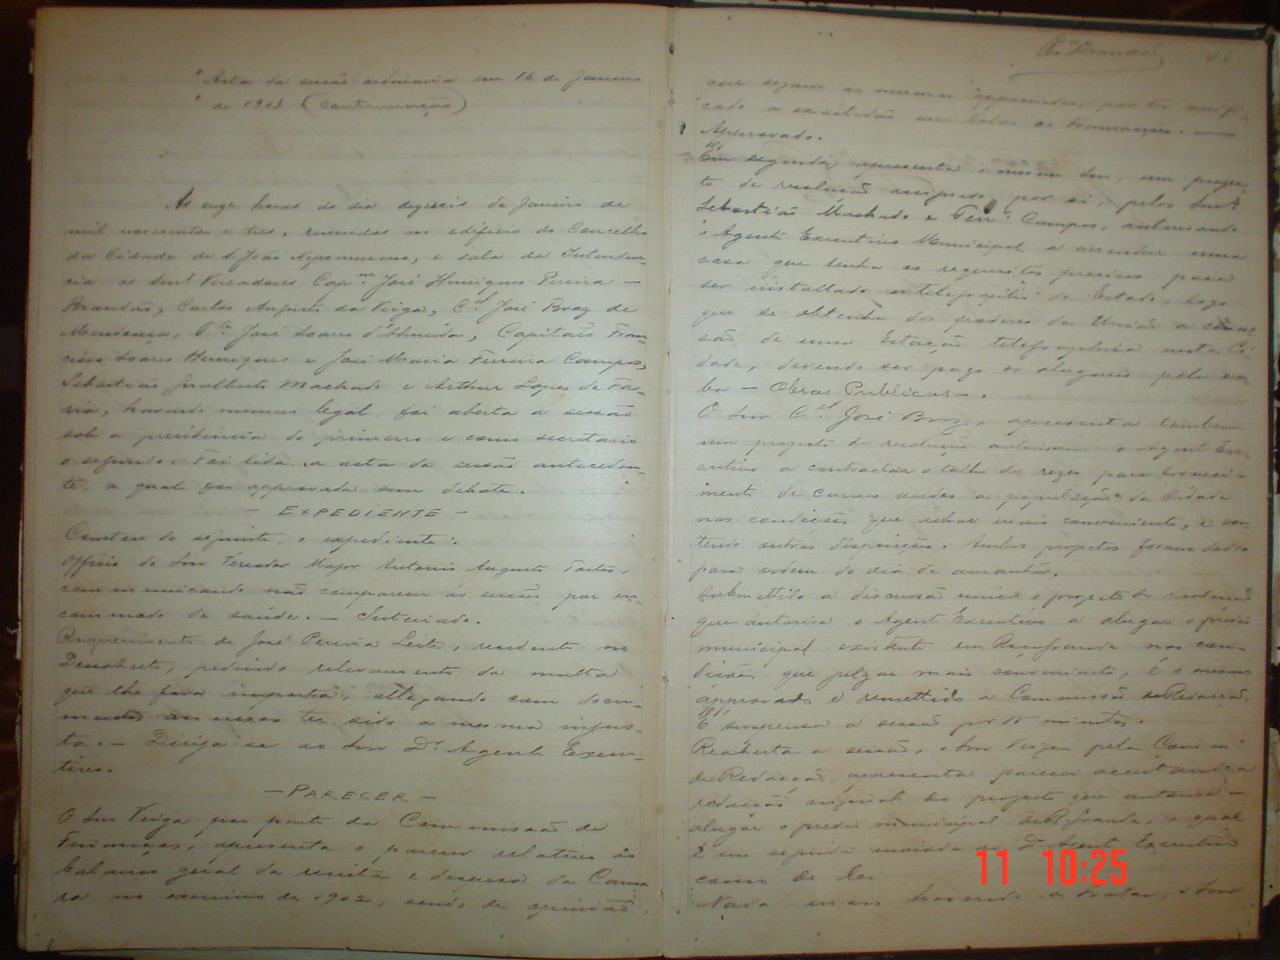 "Acta da sessão ordinaria em 16 de Janeiro
" de 1903 (continuação)
As onze horas do dia dezeseis de Janeiro de
mil novecentos e tres, reunidos no edificio do Concelho
da Cidade de S. João Nepomuceno, e sala da Intenden-
cia os Snrs Vereadores Cap.m José Henriques Pereira —
Brandão, Carlos Augusto da Veiga, C.el José Braz de
Mendonça, T.e José Soares d'Almeida, Capitães Fran-
cisco Soares Henriques e José Maria Ferreira Campos,
Sebastião Gualberto Machado e Arthur Lopes de Fa-
ria, havendo numero legal, foi aberta a sessão
sob a presidencia do primeiro e como secretario
o segundo. Foi lida a acta da sessão anteceden-
te, a qual foi approvada sem debate.
— EXPEDIENTE —
Constou do seguinte, o expediente:
Officio do Snr Vereador Major Antonio Augusto Fortes,
communicando não comparecer ás sessões por en-
commodo de saúde. — Inteirado.
Requerimento de José Pereira Leite, residente no
Descoberto, pedindo relevamento da multa
que lhe fora imposta, allegando com docu-
mentos annexos ter sido a mesma injus-
ta. — Dirija-se ao Snr D.r Agente Execu-
tivo.
— PARECER —
O Snr Veiga por parte da Commissão de
Finanças, apresenta o parecer relativo ao
balanço geral da receita e despesa da Cama-
ra, no exercicio de 1902, sendo de opinião
46
que sejam as mesmas approvadas por ter verifi-
cado a exactidão em todas as transacções. —
Approvado.
Em seguida apresenta o mesmo Snr, um projec-
to de resolução assignado por si, pelos Snrs
Sebastião Machado e Ferr.a Campos, autorisando
o Agente Executivo Municipal a arrendar uma
casa que tenha os requisitos precisos para
ser installado o telegrapho do Estado, logo
que se obtenha dos poderes da União a conces-
são de uma Estação telegraphica nesta Ci-
dade, devendo ser pago os alugueis pela ver-
ba — Obras Publicas —.
O Snr C.el José Braz, apresenta tambem
um projecto de resolução autorisando o Agente Exe-
cutivo a contractar o talho de rezes para forneci-
mento de carnes verdes a população da Cidade
nas condições que achar mais conveniente, e con-
tendo outras disposições. Ambos projectos foram dados
para ordem do dia de amanhã.
Submettido a discussão unica o projecto de resolução
que autorisa o Agente Executivo a alugar o prédio
municipal existente em nas con-
dições que julgar mais conveniente, é o mesmo
approvado e remettido a Commissão de Redacção.
É suspensa a sessão por 15 minutos.
Reaberta a sessão, o Snr Veiga pela Commissão
de Redacção, apresenta parecer aceitando a
redacção original do projecto que autorisa —
alugar o predio municipal de o qual
é em seguida enviado ao D.r Agente Executivo
como de lei.
Nada mais havendo a tratar, o Snr
11 10:25